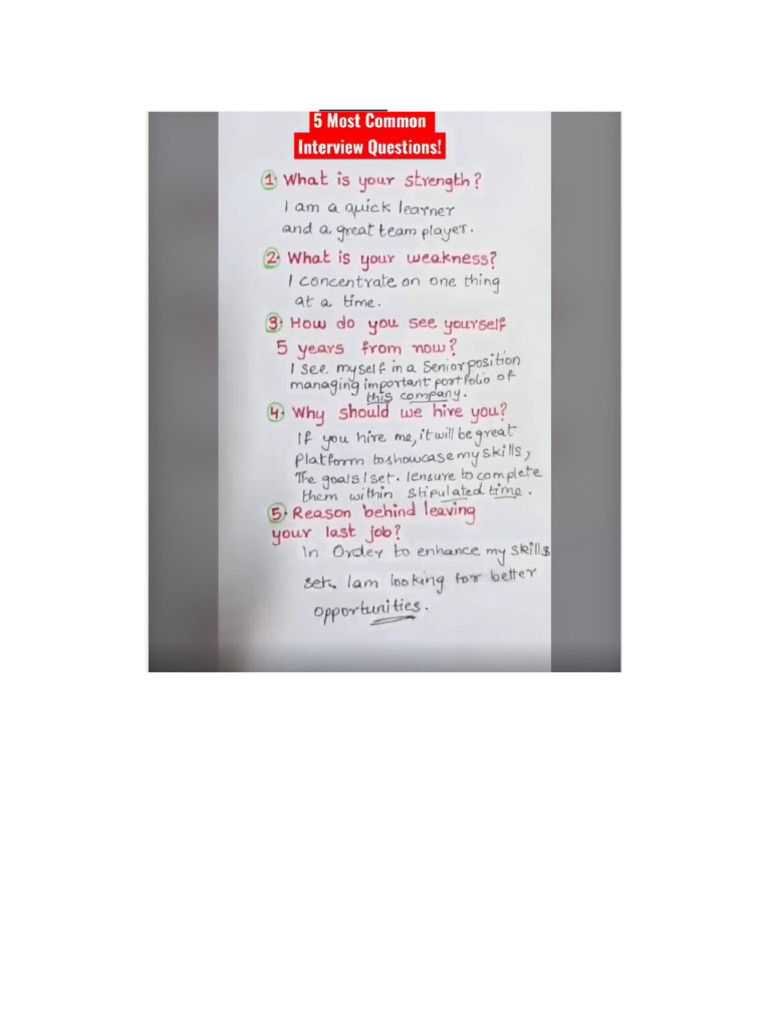 5 Most Common
Interview Questions!
1. What is your strength?
I am a quick learner
and a great team player.
2. What is your weakness?
I concentrate on one thing
at a time.
3. How do you see yourself
5 years from now?
I see myself in a Senior position
managing important portfolio of
this company.
4. Why should we hire you?
If you hire me, it will be great
Platform to showcase my skills,
The goals I set. I ensure to complete
them within stipulated time.
5. Reason behind leaving
your last job?
In Order to enhance my skills
set. I am looking for better
opportunities.